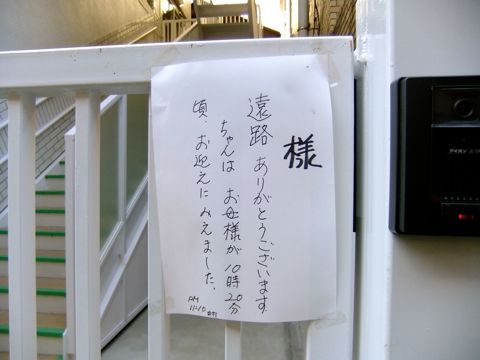 様
遠路 ありがとうございます
ちゃんは お母様が 10時20分
頃、お迎えにみえました。
AM
11:10
アイホン